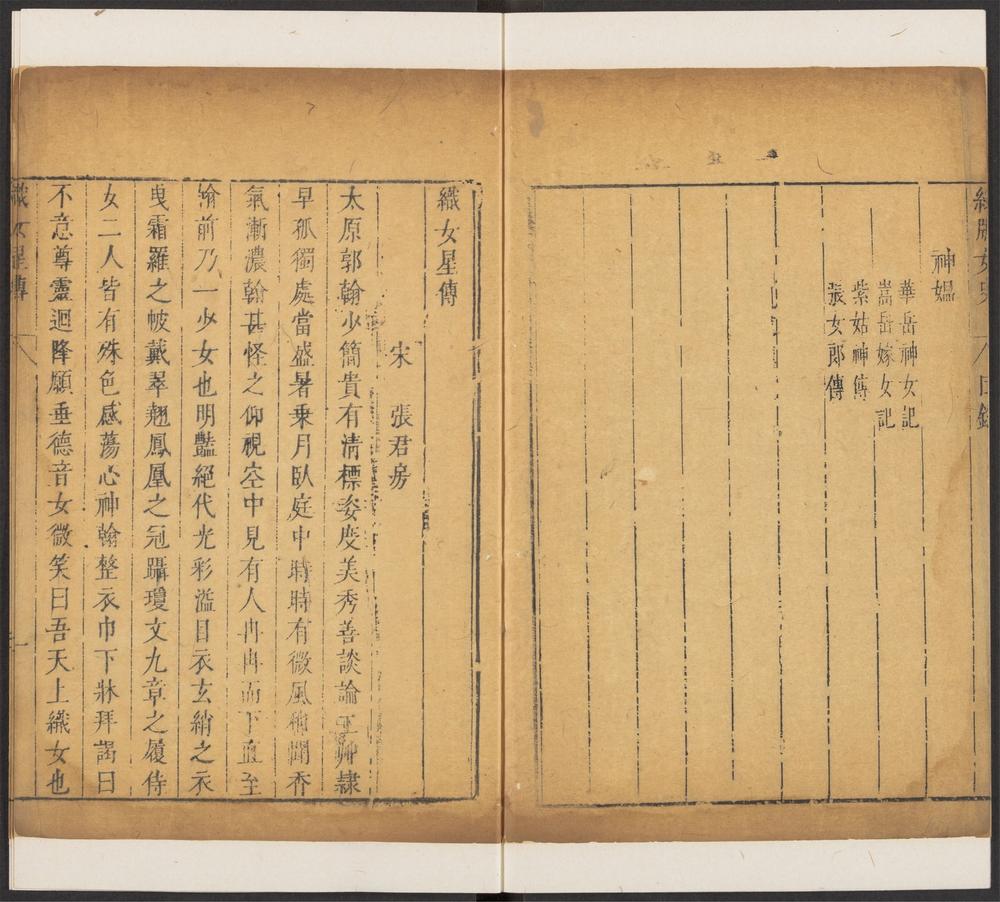 綠牕女史 八 目錄
神媼
華岳神女記
嵩岳嫁女記
紫姑神傳
張女郎傳
織女星傳
宋 張君房
太原郭翰少簡貴有清標姿度美秀善談論工艸隸
早孤獨處當盛暑乗月臥庭中時時有微風稍聞香
氣漸濃翰甚怪之仰視空中見有人冉冉而下直至
翰前乃一少女也明豔絕代光彩溢目衣玄綃之衣
曳霜羅之帔戴翠翹鳳凰之冠躡瓊文九章之履侍
女二人皆有殊色感蕩心神翰整衣巾下牀拜謁曰
不意尊靈迴降願垂德音女微笑曰吾天上織女也
織女星傳 八 一